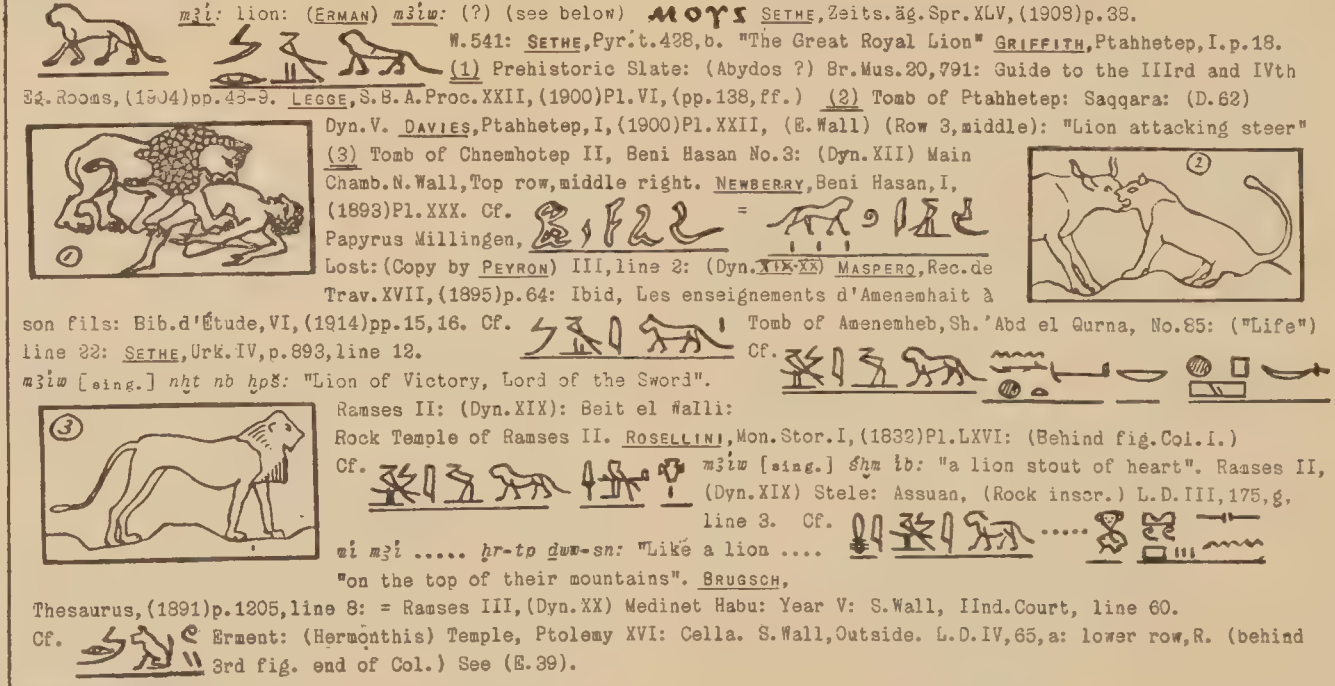 mꜣỉ: lion: (ERMAN) mꜣỉw: (?) (see below) ⲙⲟⲩⲓ SETHE,Zeits.äg.Spr.XLV,(1908)p.38.
W.541: SETHE,Pyr.t.428,b. "The Great Royal Lion" GRIFFITH,Ptahhetep,I.p.18.
(1) Prehistoric Slate: (Abydos ?) Br.Mus.20,791: Guide to the IIIrd and IVth
Eg.Rooms,(1904)pp.48-9. LEGGE,S.B.A.Proc.XXII,(1900)Pl.VI,(pp.138,ff.) (2) Tomb of Ptahhetep: Saqqara: (D.62)
Dyn.V. DAVIES,Ptahhetep,I,(1900)Pl.XXII, (E.Wall) (Row 3,middle): "Lion attacking steer"
(3) Tomb of Chnemhotep II, Beni Hasan No.3: (Dyn.XII) Main
Chamb.N.Wall,Top row,middle right. NEWBERRY,Beni Hasan,I,
(1893)Pl.XXX. Cf. =
Papyrus Millingen,
Lost:(Copy by PEYRON) III,line 2: (Dyn.XIX-XX) MASPERO,Rec.de
Trav.XVII,(1895)p.64: Ibid, Les enseignements d'Amenemhait à
son fils: Bib.d'Étude,VI,(1914)pp.15,16. Cf. Tomb of Amenemheb,Sh.'Abd el Qurna, No.85: ("Life")
line 22: SETHE,Urk.IV,p.893,line 12. Cf.
mꜣỉw [sing.] nḫt nb ḫpš: "Lion of Victory, Lord of the Sword".
Ramses II: (Dyn.XIX): Beit el Walli:
Rock Temple of Ramses II. ROSELLINI,Mon.Stor.I,(1832)Pl.LXVI: (Behind fig.Col.I.)
Cf. mꜣỉw [sing.] śḫm ỉb: "a lion stout of heart". Ramses II,
(Dyn.XIX) Stele: Assuan, (Rock inscr.) L.D.III,175,g,
line 3. Cf. .....
mỉ mꜣỉ ..... ḥr-tp ḏww-sn: "Like a lion ....
"on the top of their mountains". BRUGSCH,
Thesaurus,(1891)p.1205,line 8: = Ramses III,(Dyn.XX) Medinet Habu: Year V: S.Wall, IInd.Court, line 60.
Cf. Erment: (Hermonthis) Temple, Ptolemy XVI: Cella. S.Wall,Outside. L.D.IV,65,a: lower row,R. (behind
3rd fig. end of Col.) See (E.39).
1
2
3